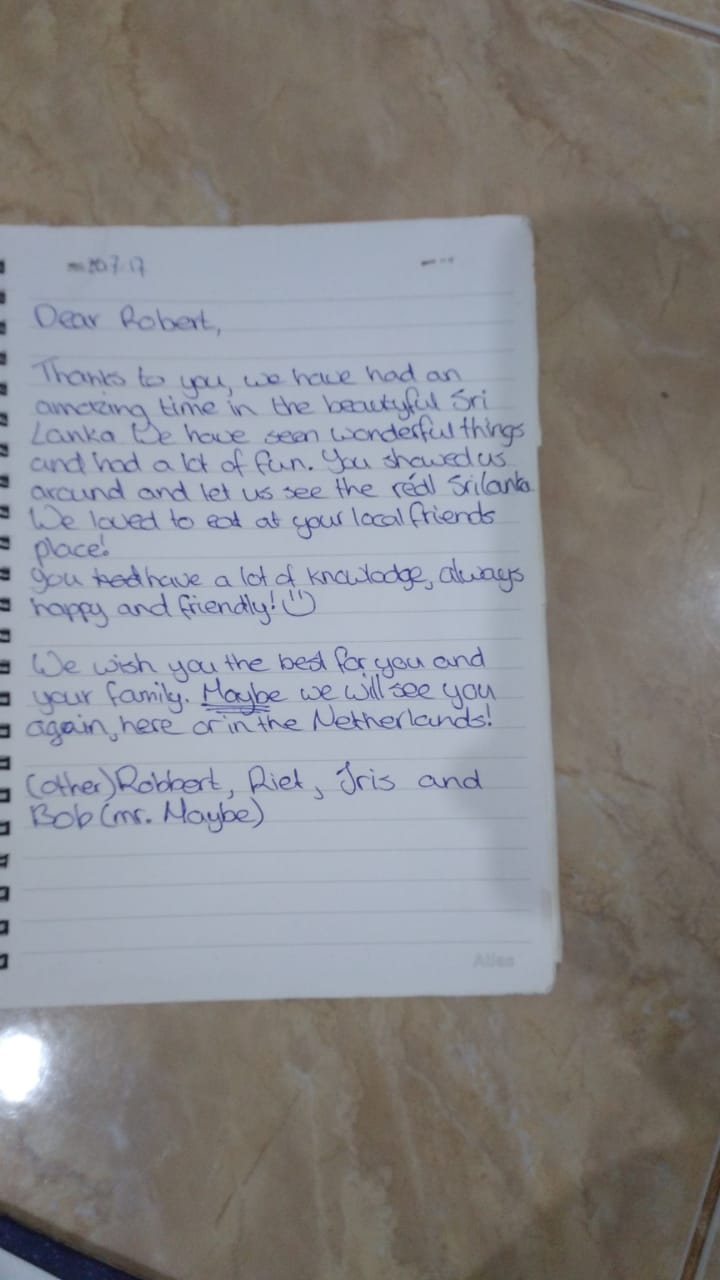 20.7.17
Dear Robert,
Thanks to you, we have had an
amazing time in the beautyful Sri
Lanka We have seen wonderful things
and had a lot of fun. You showed us
around and let us see the réal Srilanka
We loved to eat at your local friends
place!
you had have a lot of knowlodge, always
happy and friendly! :)
We wish you the best for you and
your family. Maybe we will see you
again, here or in the Netherlands!
(other) Robbert, Riet, Iris and
Bob (mr. Maybe)
Atlas